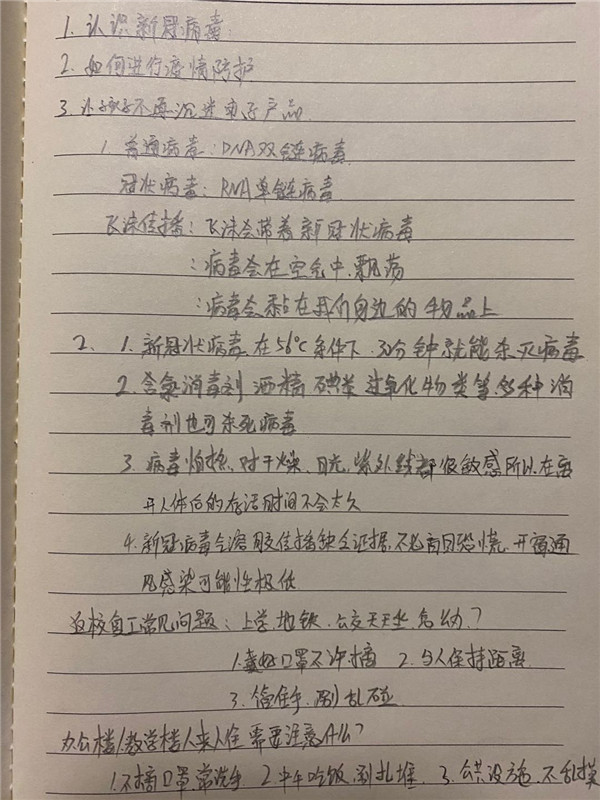 1. 认识新冠病毒.
2. 如何进行疫情防护
3. 让孩子不再沉迷电子产品.
1. 普通病毒：DNA双链病毒.
冠状病毒：RNA单链病毒.
飞沫传播：飞沫会带着新冠状病毒
：病毒会在空气中.飘荡
：病毒会黏在我们身边的物品上
2、 1. 新冠状病毒在56℃条件下.30分钟就能杀灭病毒
2. 含氯消毒剂 酒精 碘类 过氧化物类等.多种消
毒剂也可杀死病毒
3. 病毒怕热、对干燥、日光、紫外线都很敏感所以在离
开人体后的存活时间不会太久
4. 新冠病毒气溶胶传播缺乏证据、不必高因恐慌、开窗通
风感染可能性极低
返校复工常见问题：上学.地铁.公交天天坐.怎么办？
1.戴好口罩不许摘 2. 与人保持距离
3. 管住手.别乱碰
办公楼/教学楼人来人往 需要注意什么？
1.不摘口罩.常洗手. 2.中午吃饭.别扎堆. 3. 公共设施.不乱摸